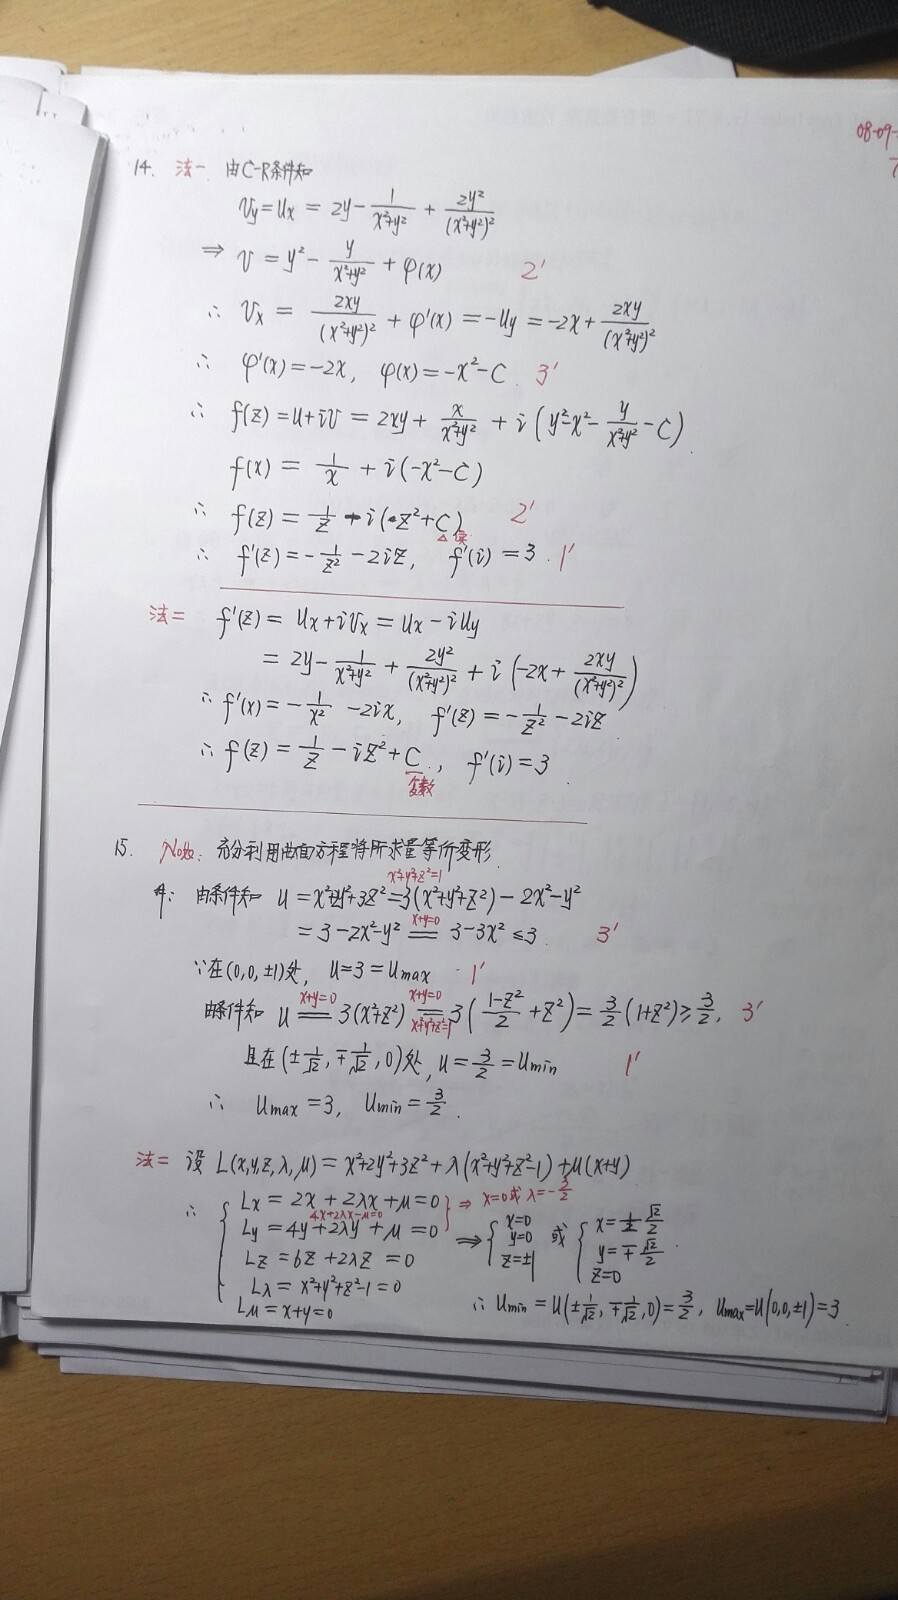 08-09-
14. 法一. 由C-R条件知
Vy=Ux = 2y - 1/(x²+y²) + 2y²/(x²+y²)²
⇒ V = y² - y/(x²+y²) + φ(x) 2'
∴ Vx = 2xy/(x²+y²)² + φ'(x) = -Uy = -2x + 2xy/(x²+y²)²
∴ φ'(x) = -2x, φ(x) = -x² - C. 3'
∴ f(z) = u+iv = 2xy + x/(x²+y²) + i(y²-x² - y/(x²+y²) - C).
f(x) = 1/x + i(-x²-C)
∴ f(z) = 1/z - i(z²+C) 2'
∴ f'(z) = -1/z² - 2iz, f'(i) = 3. 1'
法二 f'(z) = Ux+iVx = Ux-iUy
= 2y - 1/(x²+y²) + 2y²/(x²+y²)² + i(-2x + 2xy/(x²+y²)²)
∴ f'(x) = -1/x² - 2ix, f'(z) = -1/z² - 2iz
∴ f(z) = 1/z - iz² + C, f'(i) = 3
复数
15. Note: 充分利用曲面方程将所求量等价变形.
x²+y²+z²=1
由条件知 U = x²+2y²+3z² = 3(x²+y²+z²) - 2x² - y²
x+y=0
= 3-2x²-y² = 3-3x² ≤ 3. 3'
∵在(0,0,±1)处, U=3=Umax 1'
x+y=0 x+y=0
由条件知 U = 3(x²+z²) = 3((1-z²)/2 + z²) = 3/2(1+z²) ≥ 3/2, 3'
x²+y²+z²=1
且在(±1/√2, ∓1/√2, 0)处, U=3/2=Umin 1'
∴ Umax=3, Umin=3/2.
法二 设 L(x,y,z,λ,μ) = x²+2y²+3z²+λ(x²+y²+z²-1)+μ(x+y)
∴ { Lx = 2x+2λx+μ=0 ⇒ x=0 或 λ=-3/2
4x+2λx-μ=0
Ly = 4y+2λy+μ=0
Lz = 6z+2λz =0
Lλ = x²+y²+z²-1=0
Lμ = x+y=0
⇒ { x=0 y=0 z=±1 或 { x=±√2/2 y=∓√2/2 z=0
∴ Umin = U(±1/√2, ∓1/√2, 0) = 3/2, Umax=U(0,0,±1)=3.